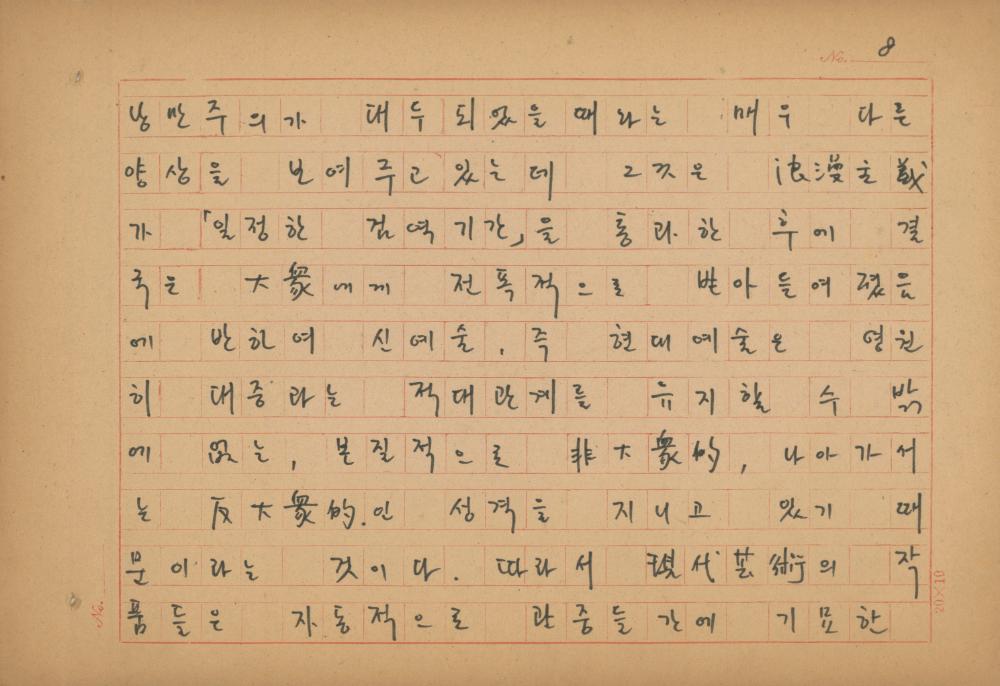 No. 8
낭만주의가 대두되었을 때와는 매우 다른
양상을 보여주고 있는데 그것은 浪漫主義
가 「일정한 검역기간」을 통과한 후에 결
국은 大衆에게 전폭적으로 받아들여졌음
에 반하여 신예술, 즉 현대예술은 영원
히 대중과는 적대관계를 유지할 수 밖
에 없는, 본질적으로 非大衆的, 나아가서
는 反大衆的.인 성격을 지니고 있기 때
문이라는 것이다. 따라서 現代芸術의 작
품들은 자동적으로 관중들 간에 기묘한
No.
20×10